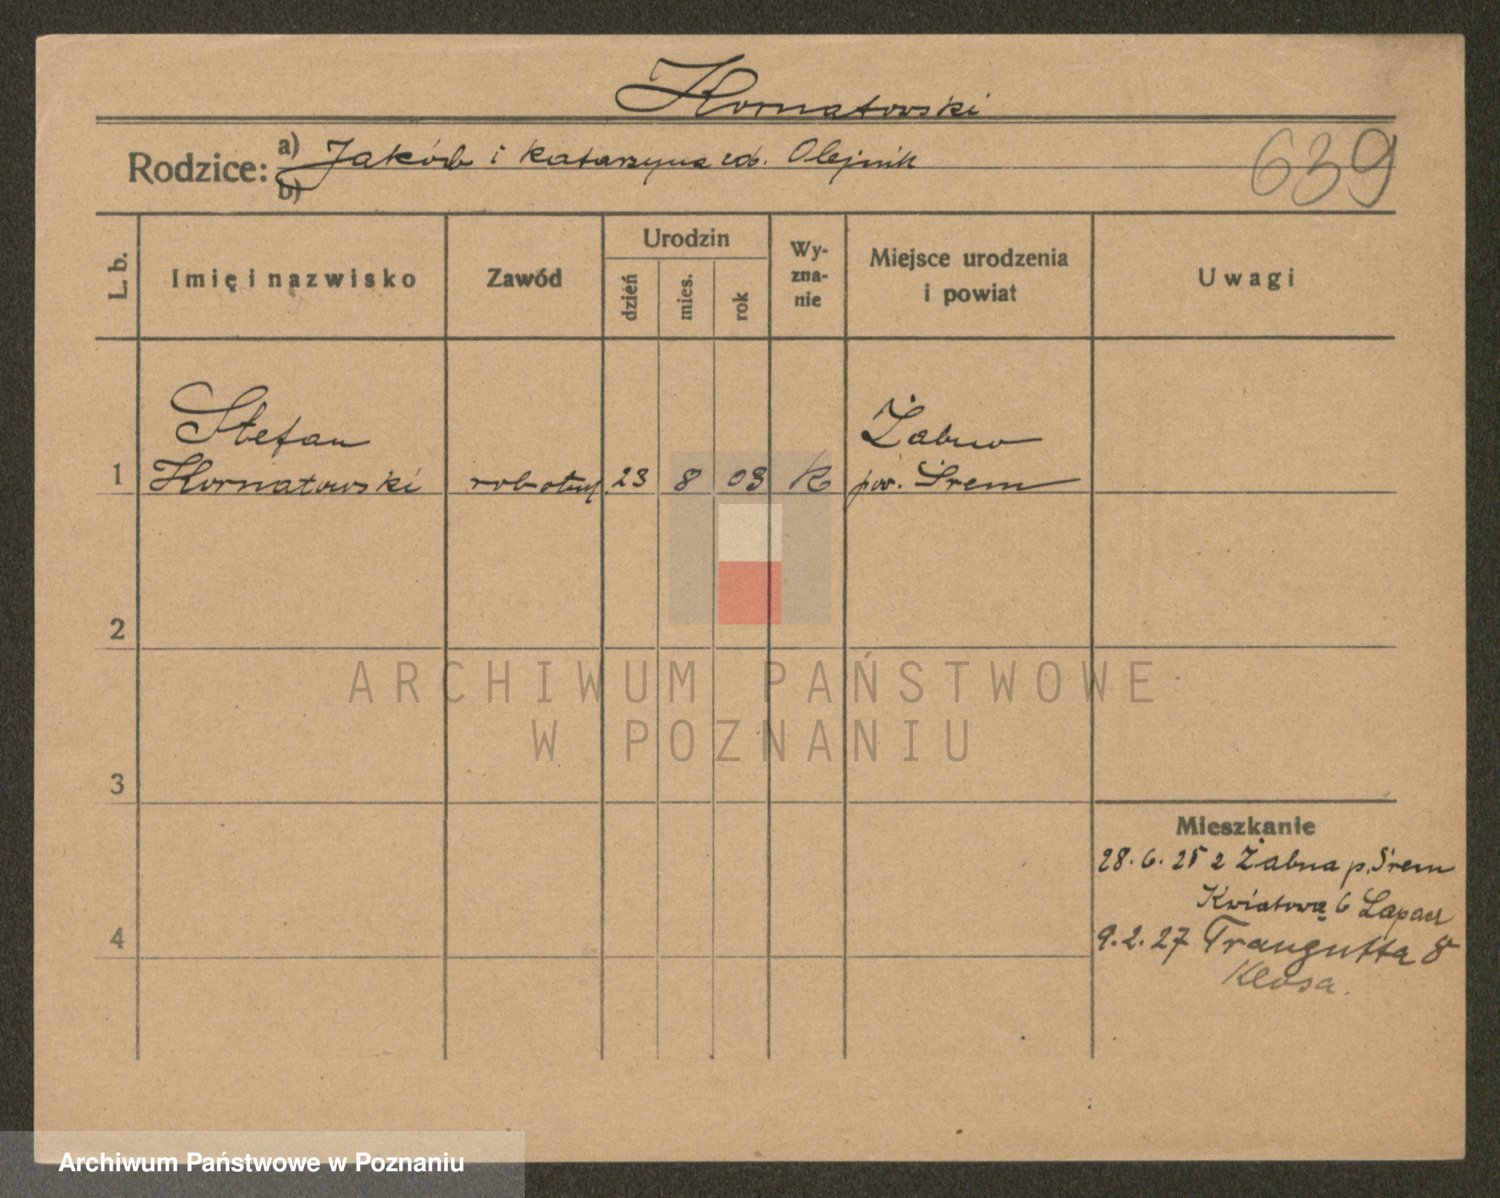 Kornatowski
Rodzice: a) Jakób i Katarzyna zd. Olejnik
b)
639
L. b.
Imię i nazwisko
Zawód
Urodzin
dzień
mies.
rok
Wy-
zna-
nie
Miejsce urodzenia
i powiat
Uwagi
Stefan
Żabno
1 Kornatowski robotnik 23 8 03 K pow. Śrem
2
3
4
Mieszkanie
28.6.25 z Żabna p. Śrem
Kwiatowa 6
9.2.27 Traugutta 8
Klosa.
ARCHIWUM PAŃSTWOWE
W POZNANIU
Archiwum Państwowe w Poznaniu